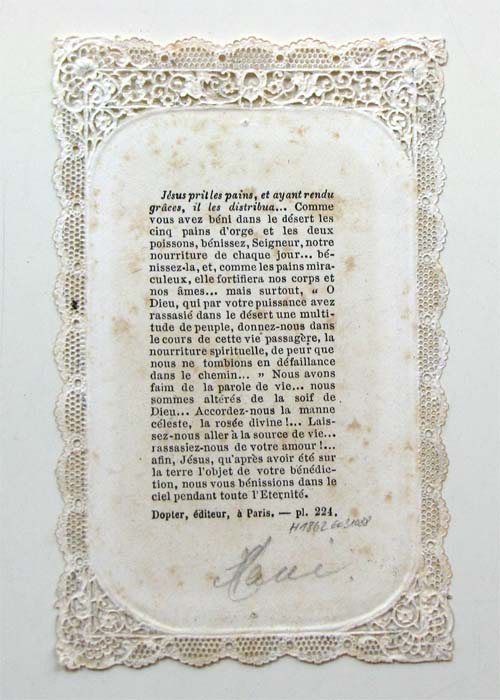 Jésus prit les pains, et ayant rendu
grâces, il les distribua... Comme
vous avez béni dans le désert les
cinq pains d'orge et les deux
poissons, bénissez, Seigneur, notre
nourriture de chaque jour... bé-
nissez-la, et, comme les pains mira-
culeux, elle fortifiera nos corps et
nos âmes... mais surtout, « O
Dieu, qui par votre puissance avez
rassasié dans le désert une multi-
tude de peuple, donnez-nous dans
le cours de cette vie passagère, la
nourriture spirituelle, de peur que
nous ne tombions en défaillance
dans le chemin... » Nous avons
faim de la parole de vie... nous
sommes altérés de la soif de
Dieu... Accordez-nous la manne
céleste, la rosée divine !... Lais-
sez-nous aller à la source de vie...
rassasiez-nous de votre amour !...
afin, Jésus, qu'après avoir été sur
la terre l'objet de votre bénédic-
tion, nous vous bénissions dans le
ciel pendant toute l'Eternité.
Dopter, éditeur, à Paris. — pl. 224.